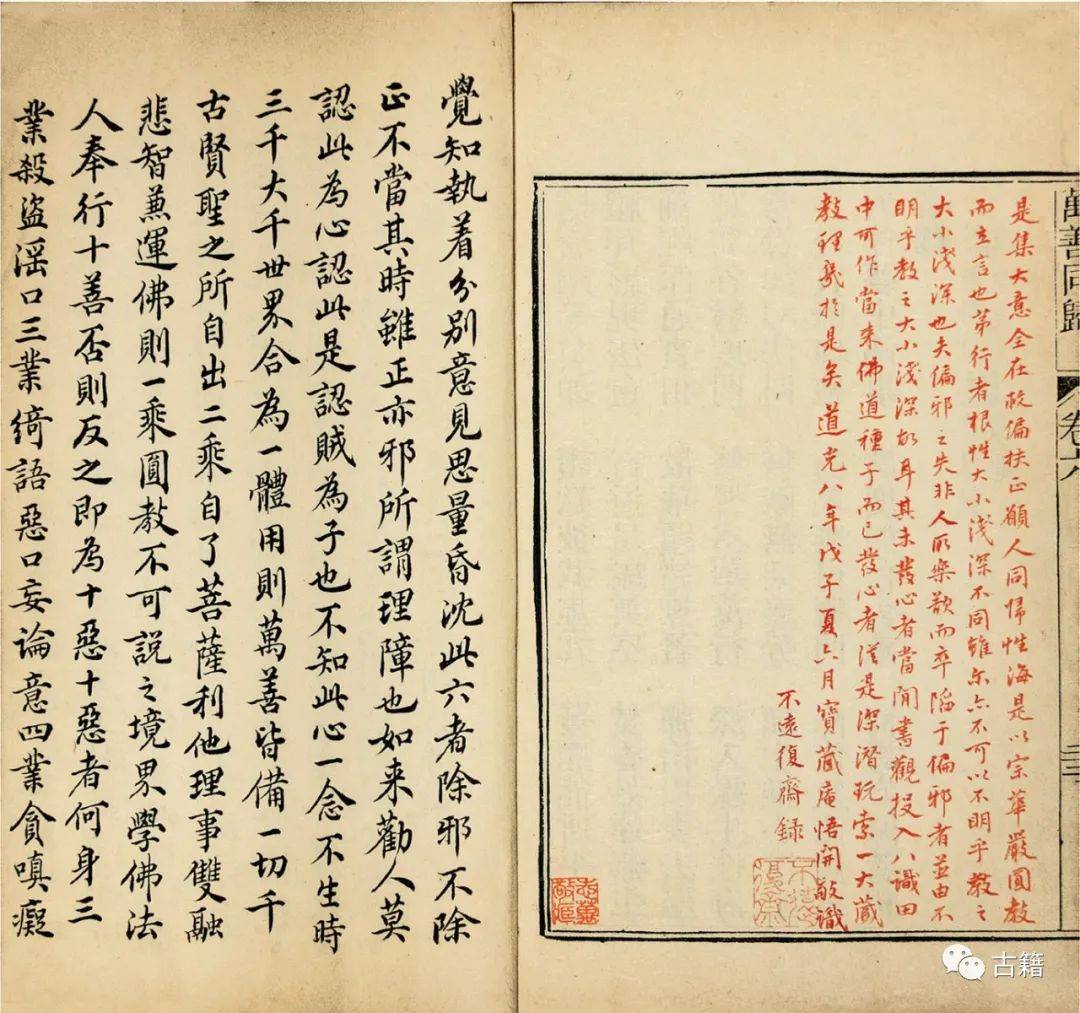 萬善同歸
卷六
是集大意全在破偏扶正願人同帰性海是以宗華嚴圓教
而立言也第行者根性大小淺深不同雖尔亦不可以不明乎教之
大小淺深也夫偏邪之失非人所樂歆而卒陷于偏邪者並由不
明乎教之大小淺深故耳其未發心者當閒書觀投入八識田
中可作當来佛道種子而已發心者從是深潛玩索一大藏
教理幾於是矣道光八年戊子夏六月寶藏庵悟開敬識
不遠復齋錄
不遠復齋
覺知執着分別意見思量昏沈此六者除邪不除
正不當其時雖正亦邪所謂理障也如来勸人莫
認此為心認此是認賊為子也不知此心一念不生時
三千大千世界合為一體用則萬善皆備一切千
古賢聖之所自出二乘自了菩薩利他理事雙融
悲智兼運佛則一乘圓教不可說之境界學佛法
人奉行十善否則反之即為十惡十惡者何身三
業殺盜淫口三業綺語惡口妄論意四業貪嗔癡
古籍